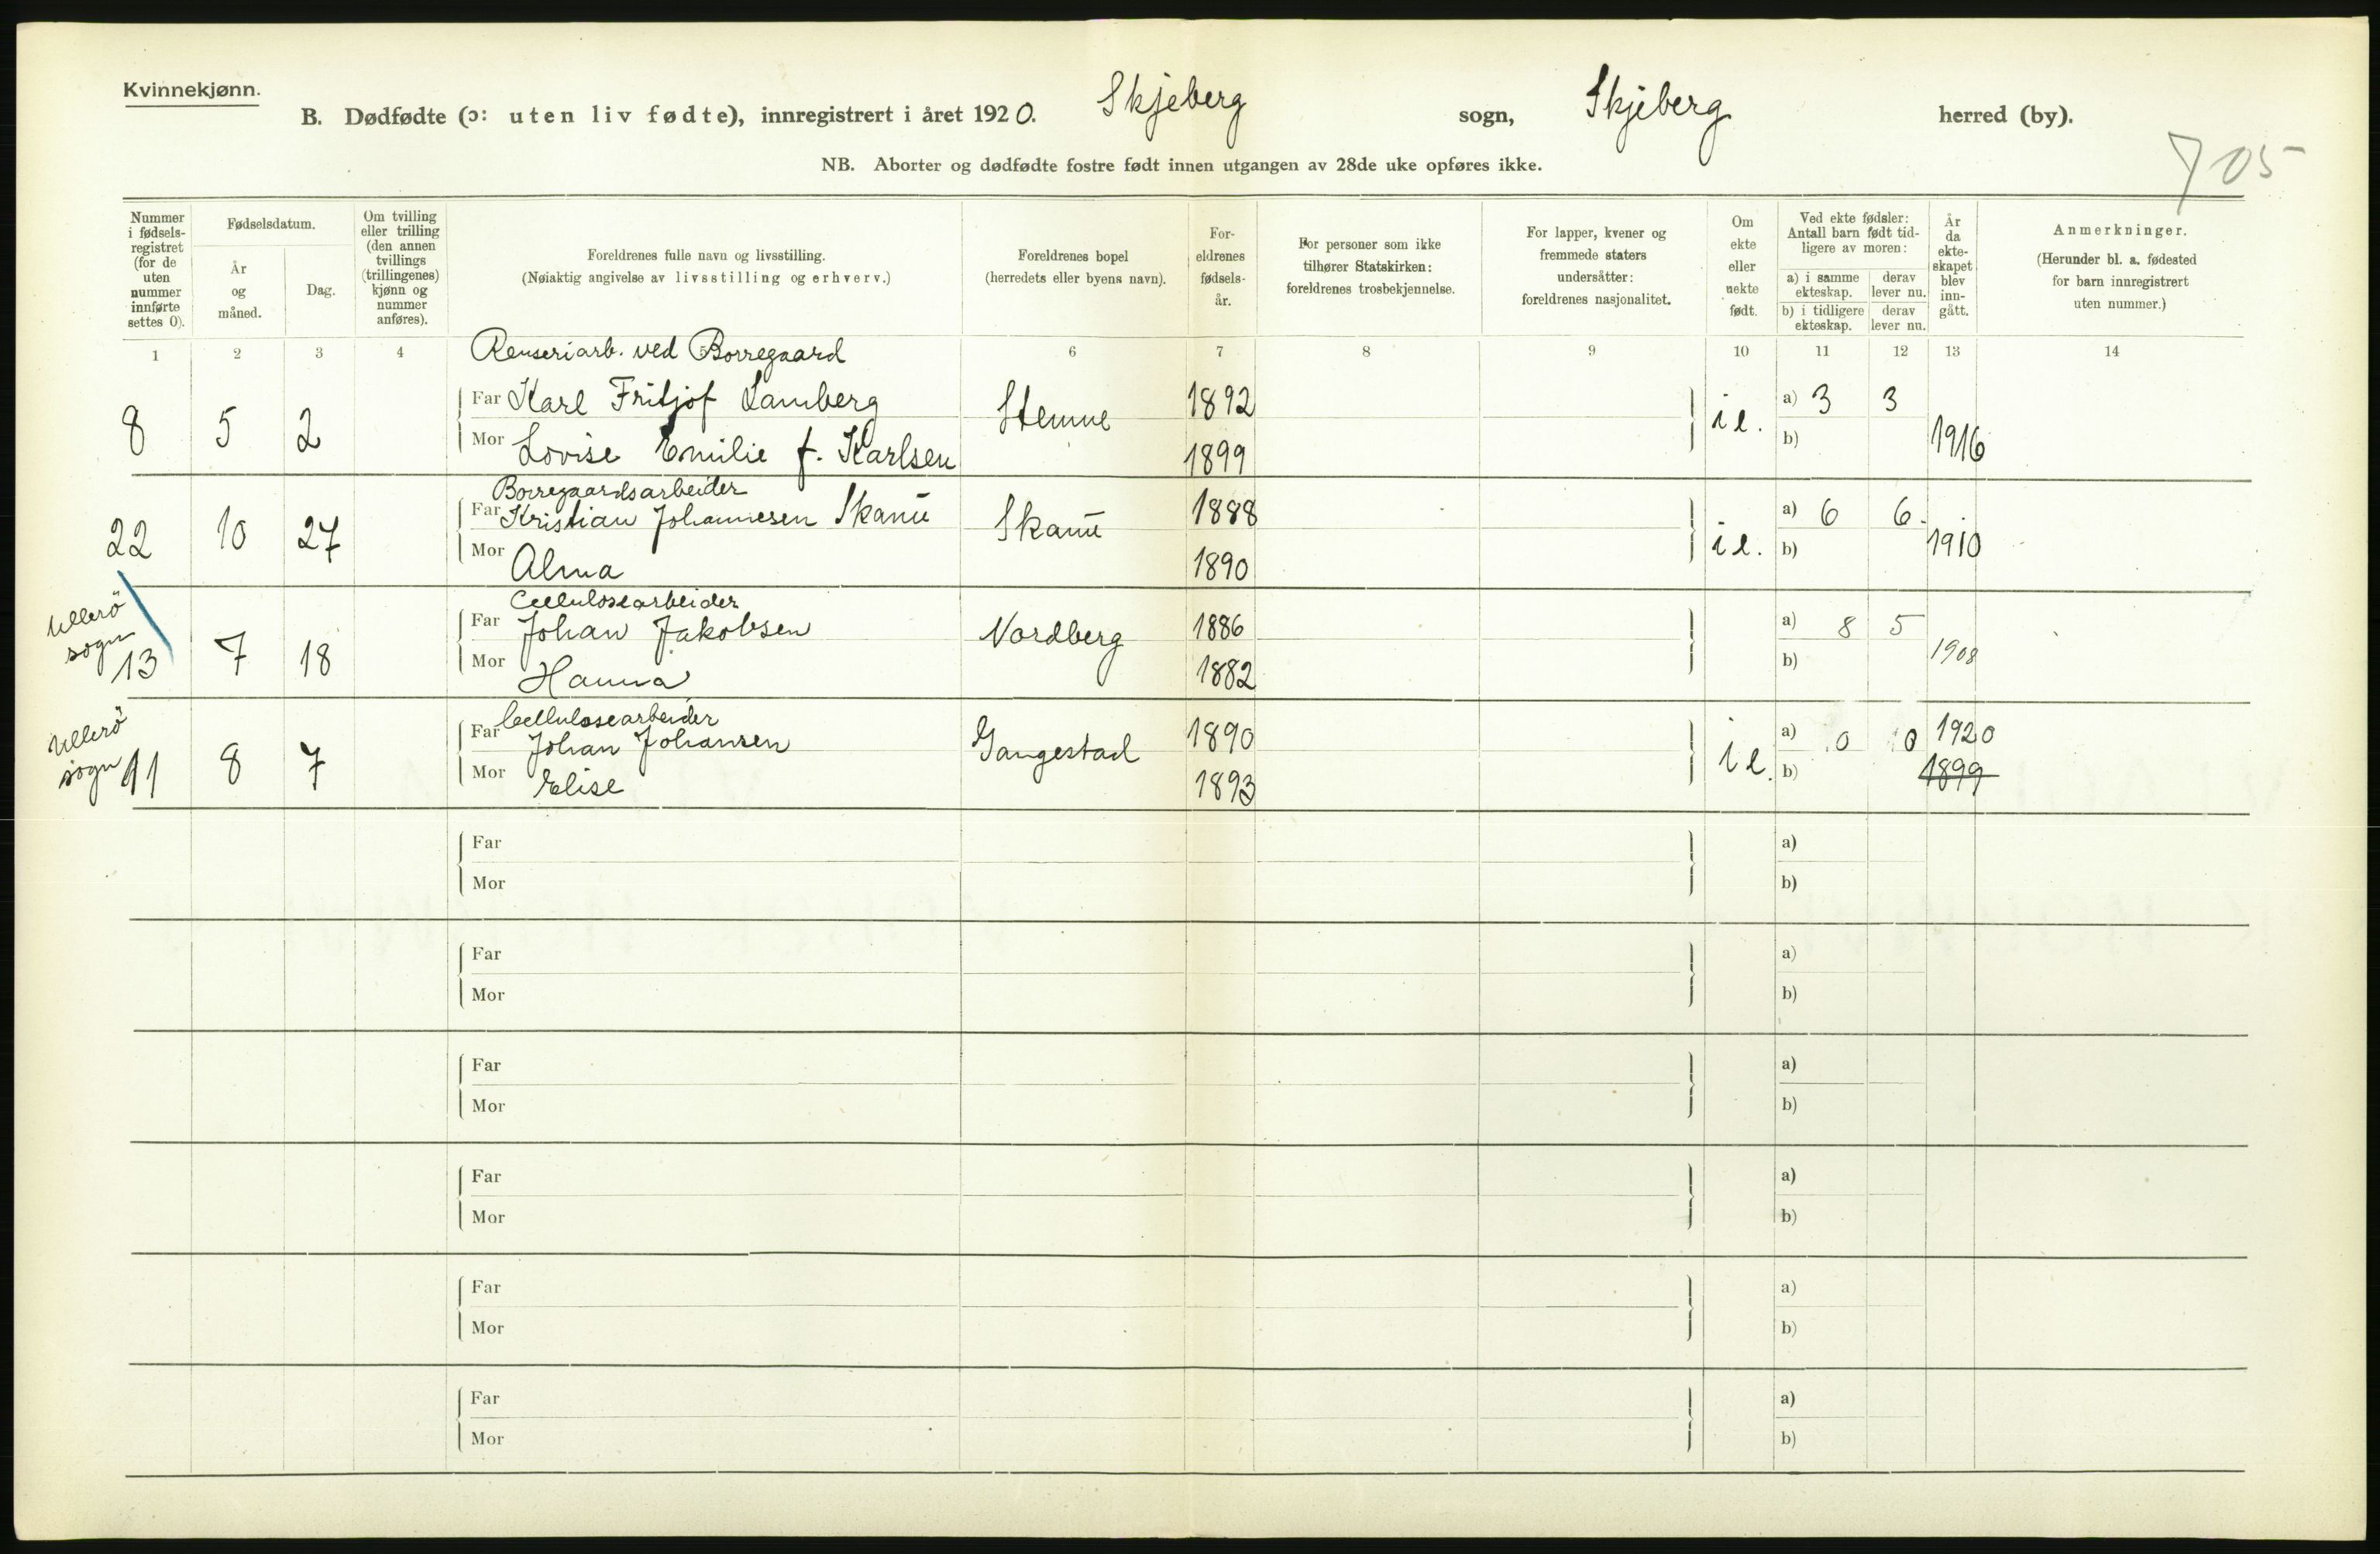 Kvinnekjønn.
B. Dødfødte (ɔ: uten liv fødte), innregistrert i året 1920. Skjeberg sogn, Skjeberg herred (by).
NB. Aborter og dødfødte fostre født innen utgangen av 28de uke opføres ikke.
705
Nummer i fødsels-registret (for de uten nummer innførte settes 0).
Fødselsdatum.
År og måned.
Dag.
Om tvilling eller trilling (den annen tvillings (trillingenes) kjønn og nummer anføres).
Foreldrenes fulle navn og livsstilling.
(Nøiaktig angivelse av livsstilling og erhverv.)
Foreldrenes bopel
(herredets eller byens navn).
For-eldrenes fødsels-år.
For personer som ikke tilhører Statskirken: foreldrenes trosbekjennelse.
For lapper, kvener og fremmede staters undersåtter: foreldrenes nasjonalitet.
Om ekte eller uekte født.
Ved ekte fødsler: Antall barn født tid-ligere av moren:
a) i samme ekteskap. derav lever nu.
b) i tidligere ekteskap. derav lever nu.
År da ekte-skapet blev inn-gått.
Anmerkninger.
(Herunder bl. a. fødested for barn innregistrert uten nummer.)
1 2 3 4 5 6 7 8 9 10 11 12 13 14
Renseriarb. ved Borregaard
8 5 2 Far Karl Fritjof Lamberg Stemne 1892 i e. a) 3 3 1916
Mor Lovise Emilie f. Karlsen 1899 b)
Borregaardsarbeider
22 10 27 Far Kristian Johannesen Skanü Skanü 1888 i e. a) 6 6. 1910
Mor Alma 1890 b)
Cellulosearbeider
Ullerö sogn 13 7 18 Far Johan Jakobsen Nordberg 1886 a) 8 5 1908
Mor Hanna 1882 b)
Cellulosearbeider
Ullerö sogn 11 8 7 Far Johan Johansen Gangestad 1890 i e. a) 0 0 1920
Mor Elise 1893 b) 1899
Far a)
Mor b)
Far a)
Mor b)
Far a)
Mor b)
Far a)
Mor b)
Far a)
Mor b)
Far a)
Mor b)